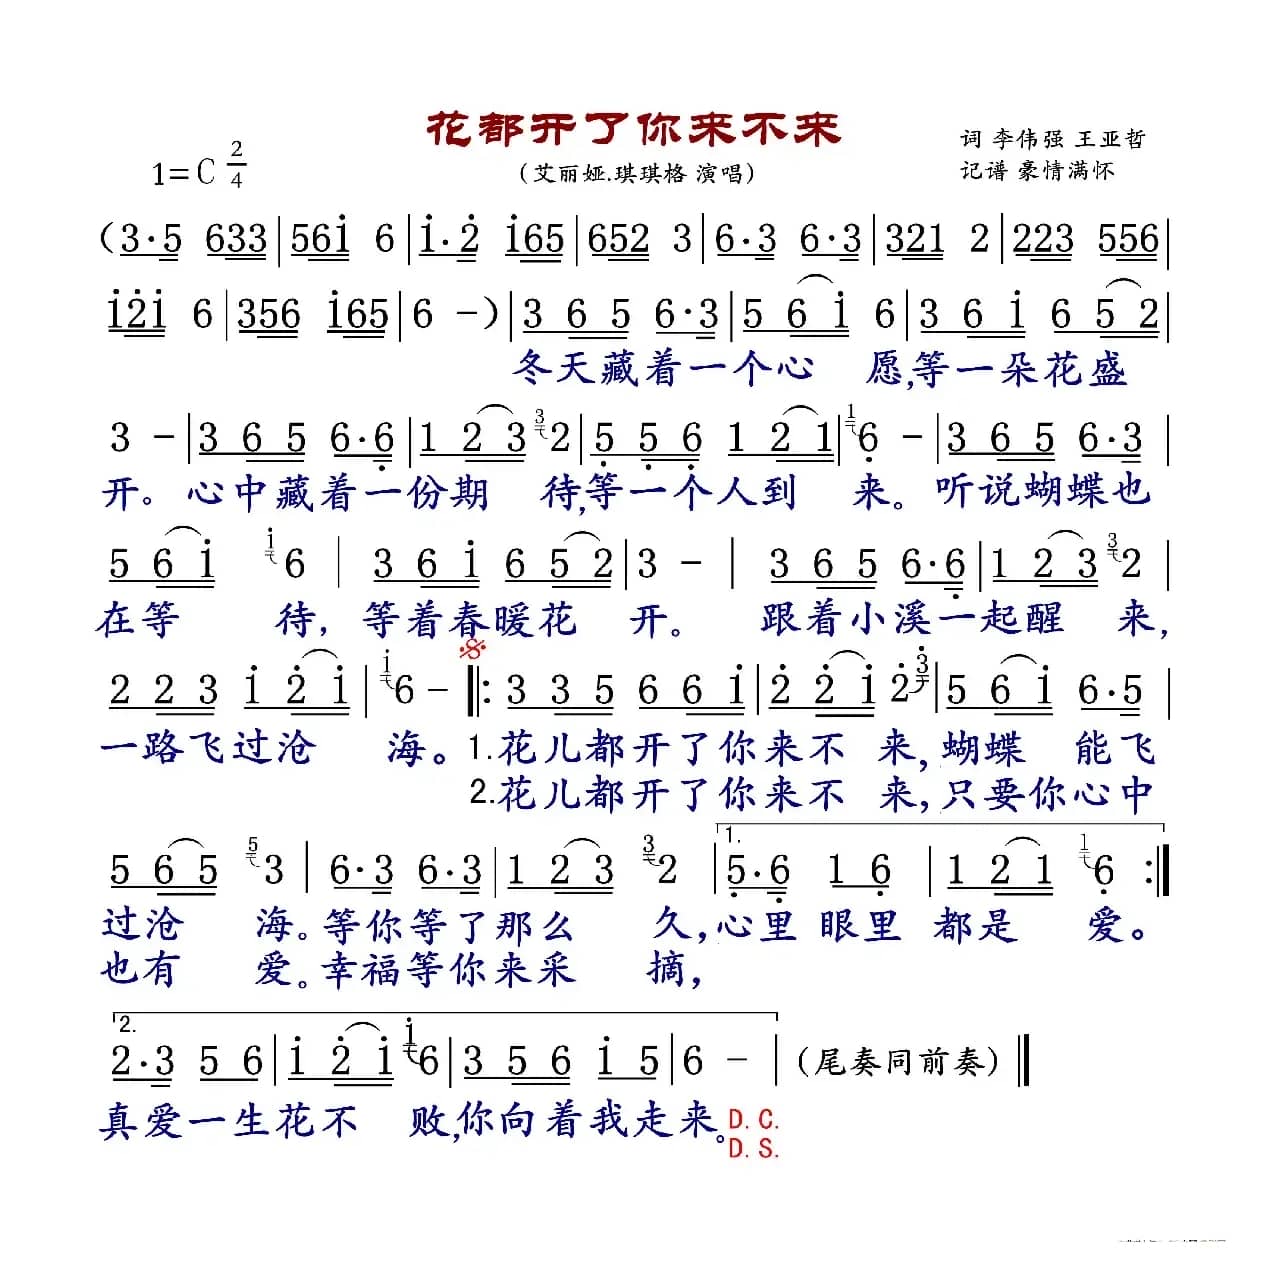 花都开了你来不来
词 李伟强 王亚哲
1=C 2/4
(艾丽娅.琪琪格 演唱)
记谱 豪情满怀
(3·5 633|561̇ 6|1̇·2̇ 1̇65|652 3|6·3 6·3|321 2|223 556|
1̇2̇1̇ 6|356 1̇65|6 -)|3 6 5 6·3|5 6 1̇ 6|3 6 1̇ 6 5 2
冬天藏着一个心 愿,等一朵花盛
3 -|3 6 5 6·6̣|1 2 3 3 2|5̣ 5̣ 6̣ 1 2 1|1 6̣ -|3 6 5 6·3|
开。心中藏着一份期 待,等一个人到 来。听说蝴蝶也
5 6 1̇ 1̇ 6|3 6 1̇ 6 5 2|3 -|3 6 5 6·6̣|1 2 3 3 2|
在等 待,等着春暖花 开。 跟着小溪一起醒 来,
2 2 3 1̇ 2̇ 1̇|1̇ 6 -‖:3 3 5 6 6 1̇|2̇ 2̇ 1̇ 2̇ 3̇|5 6 1̇ 6·5|
一路飞过沧 海。1.花儿都开了你来不 来,蝴蝶 能飞
2.花儿都开了你来不 来,只要你心中
5 6 5 5 3|6·3 6·3|1 2 3 3 2|1. 5̣·6̣ 1 6̣|1 2 1 1 6̣ :‖
过沧 海。等你等了那么 久,心里 眼里 都是 爱。
也有 爱。幸福等你来采 摘,
2. 2·3 5 6|1̇ 2̇ 1̇ 1̇ 6|3 5 6 1̇ 5|6 -|(尾奏同前奏)‖
真爱一生花不 败,你向着我走来。D.C.
D.S.